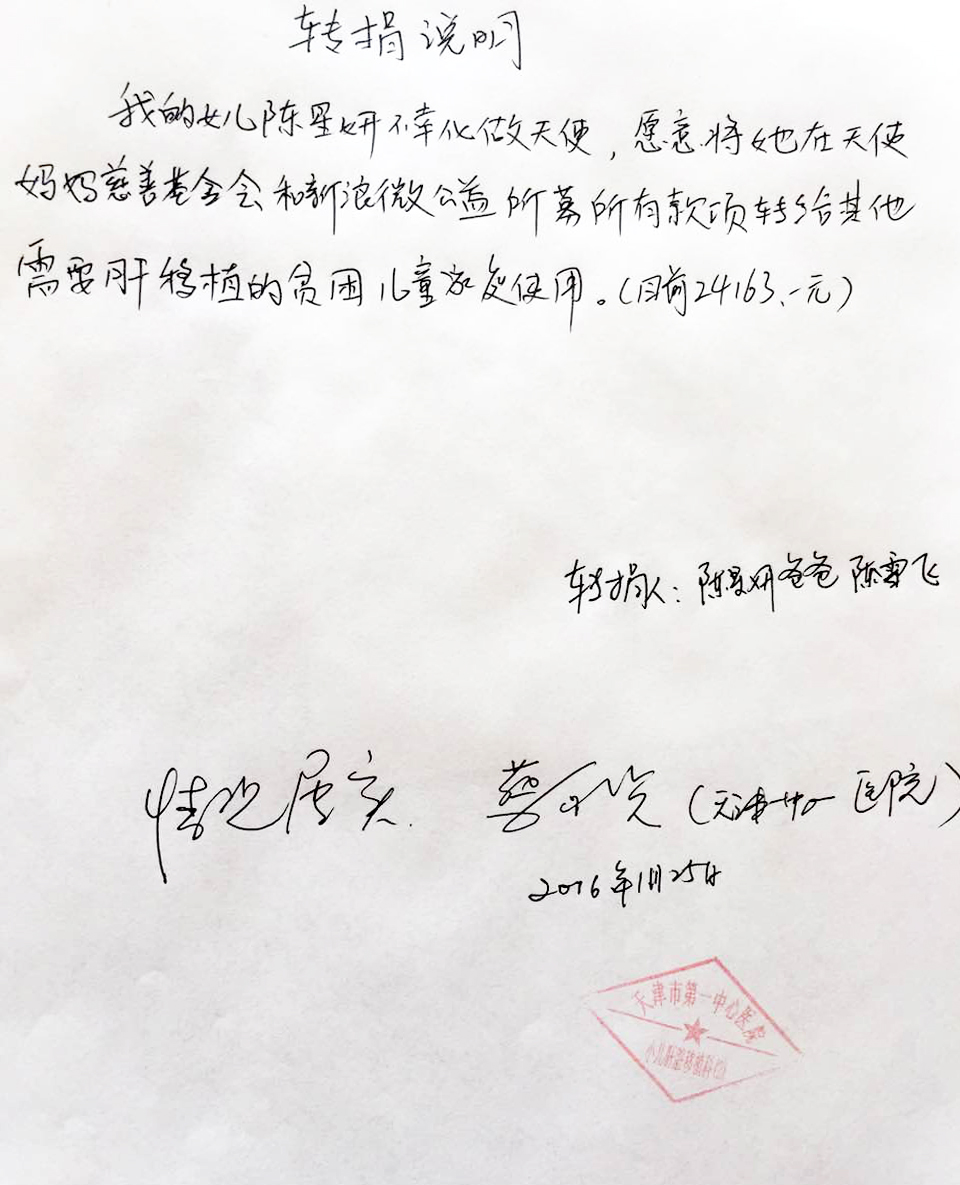 转捐说明
我的女儿陈星妍不幸化做天使，愿意将她在天使
妈妈慈善基金会和新浪微公益所募所有款项转给其他
需要肝移植的贫困儿童家庭使用。（目前24163.一元）
转捐人：陈星妍爸爸 陈雪飞
情况属实.
（天津一中心医院）
2016年1月25日
天津市第一中心医院
小儿肝脏移植科